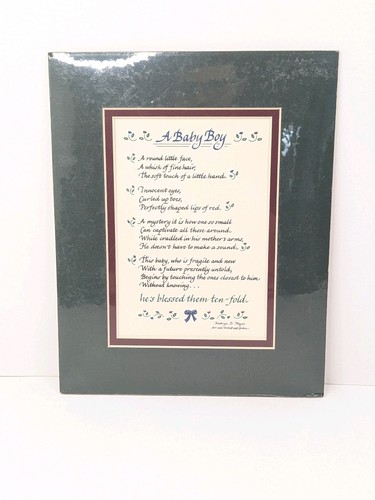 A Baby Boy
A round little face,
A whisk of fine hair,
The soft touch of a little hand.
Innocent eyes,
Curled up toes,
Perfectly shaped lips of red.
A mystery it is how one so small
Can captivate all those around.
While cradled in his mother's arms,
He doesn't have to make a sound.
This baby, who is fragile and new
With a future presently untold,
Begins by touching the ones closest to him.
Without knowing...
he's blessed them ten-fold.